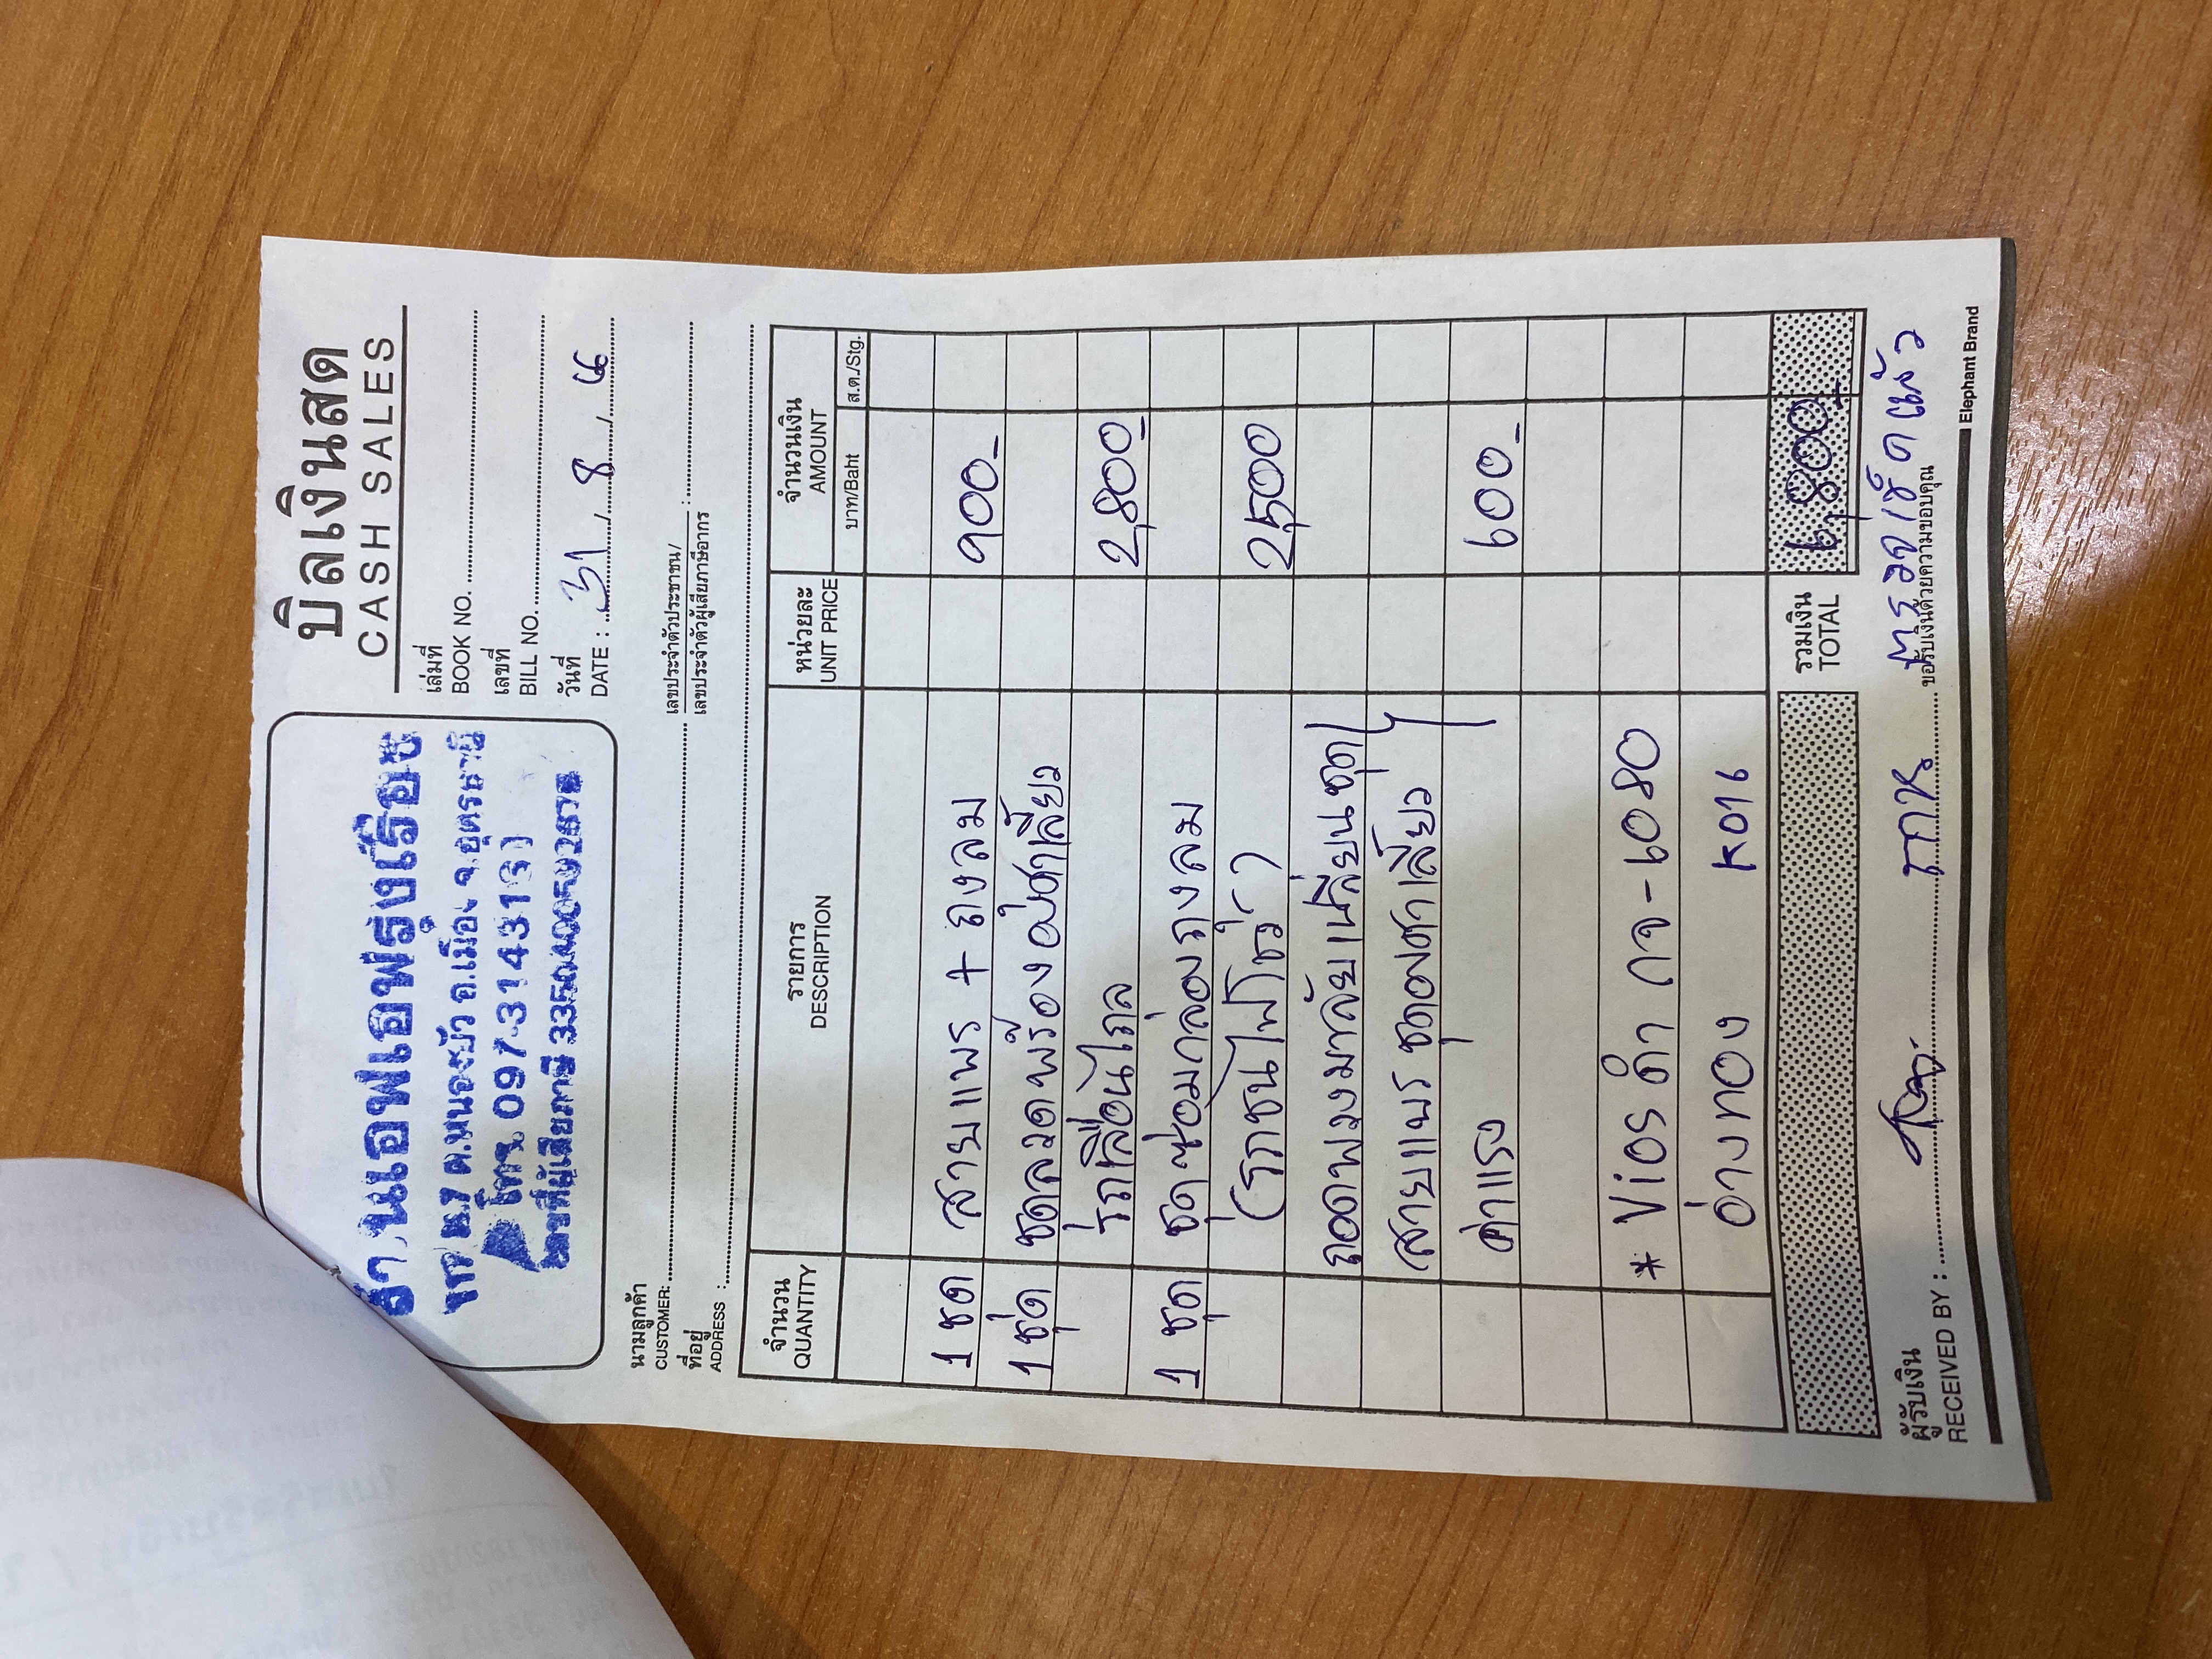 ร้านเอฟเอฟรุ่งเรือง
โทร. 097-3143131
บิลเงินสด
CASH SALES
เล่มที่
BOOK NO.
เลขที่
BILL NO.
วันที่
DATE : 31 / 8 / 66
นามลูกค้า
CUSTOMER:
เลขประจำตัวประชาชน/
เลขประจำตัวผู้เสียภาษีอากร :
ที่อยู่
ADDRESS :
จำนวน รายการ หน่วยละ จำนวนเงิน
QUANTITY DESCRIPTION UNIT PRICE AMOUNT
บาท/Baht ส.ต./Stg.
1 ชุด สายแพร + ถุงลม 900-
1 ชุด ชุดลวดพร้อมองศาเลี้ยว
รถเลื่อนไถล 2,800-
1 ชุด ชุดซ่อมกล่องถุงลม
(รถชนไฟโชว์) 2,500
ถอดพวงมาลัยเปลี่ยนชุด
สายแพร ชุดองศาเลี้ยว
ค่าแรง 600-
* Vios ดำ กจ-6080
อ่างทอง K016
รวมเงิน
TOTAL 6,800-
ผู้รับเงิน
RECEIVED BY : ขอรับเงินด้วยความขอบคุณ
ตรวจเช็คแล้ว
Elephant Brand